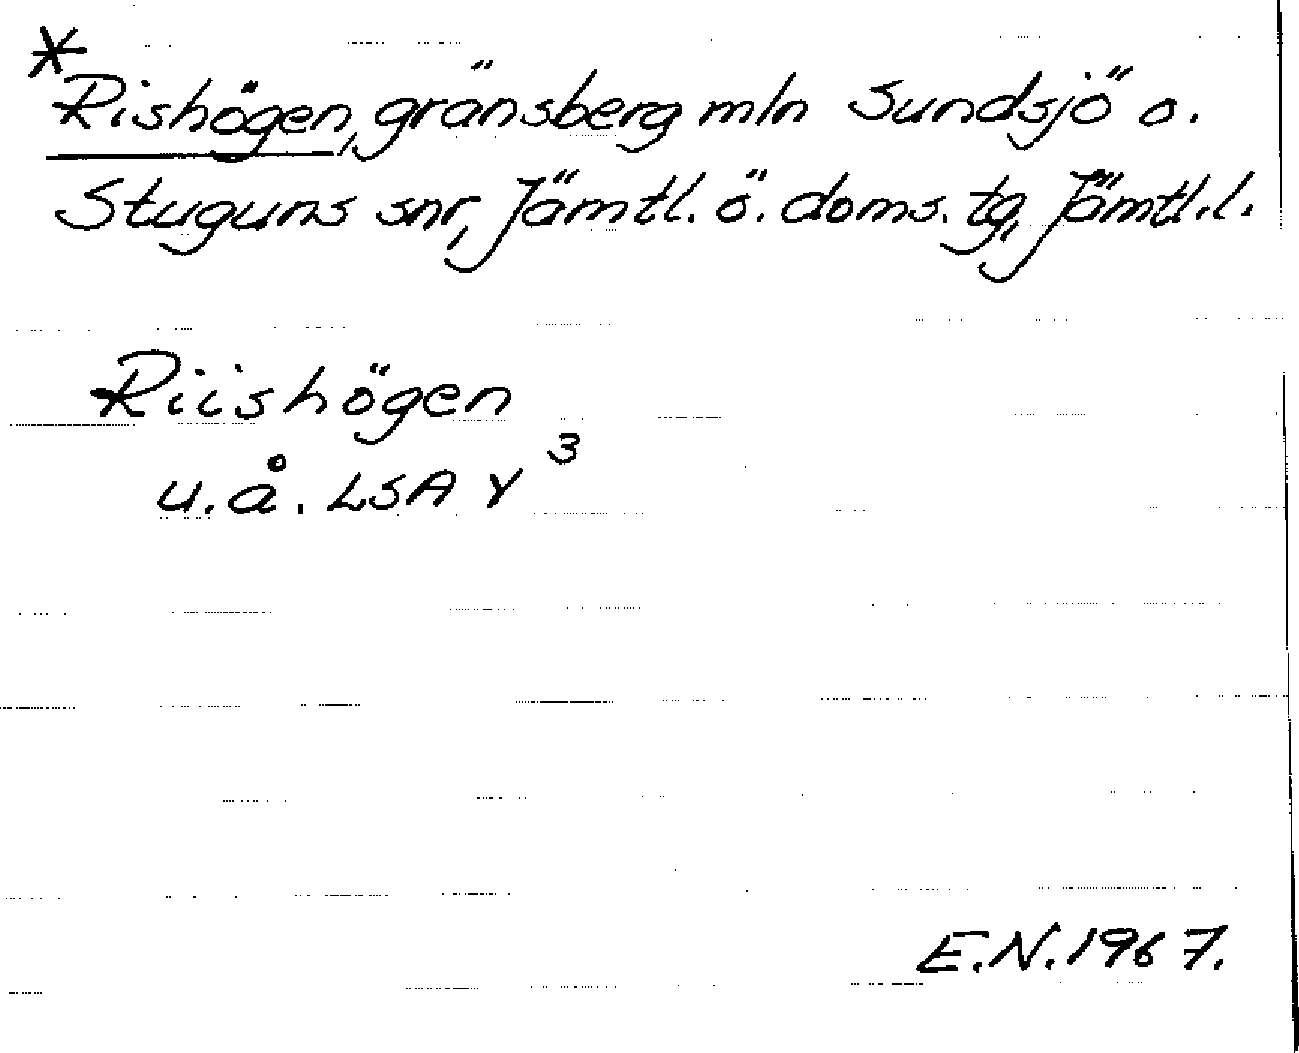 * Rishögen, gränsberg mln Sundsjö o.
Stuguns snr, Jämtl. ö. doms. tg, Jämtl.l.
Riishögen
u.å. LSA Y 3
E.N. 1967.